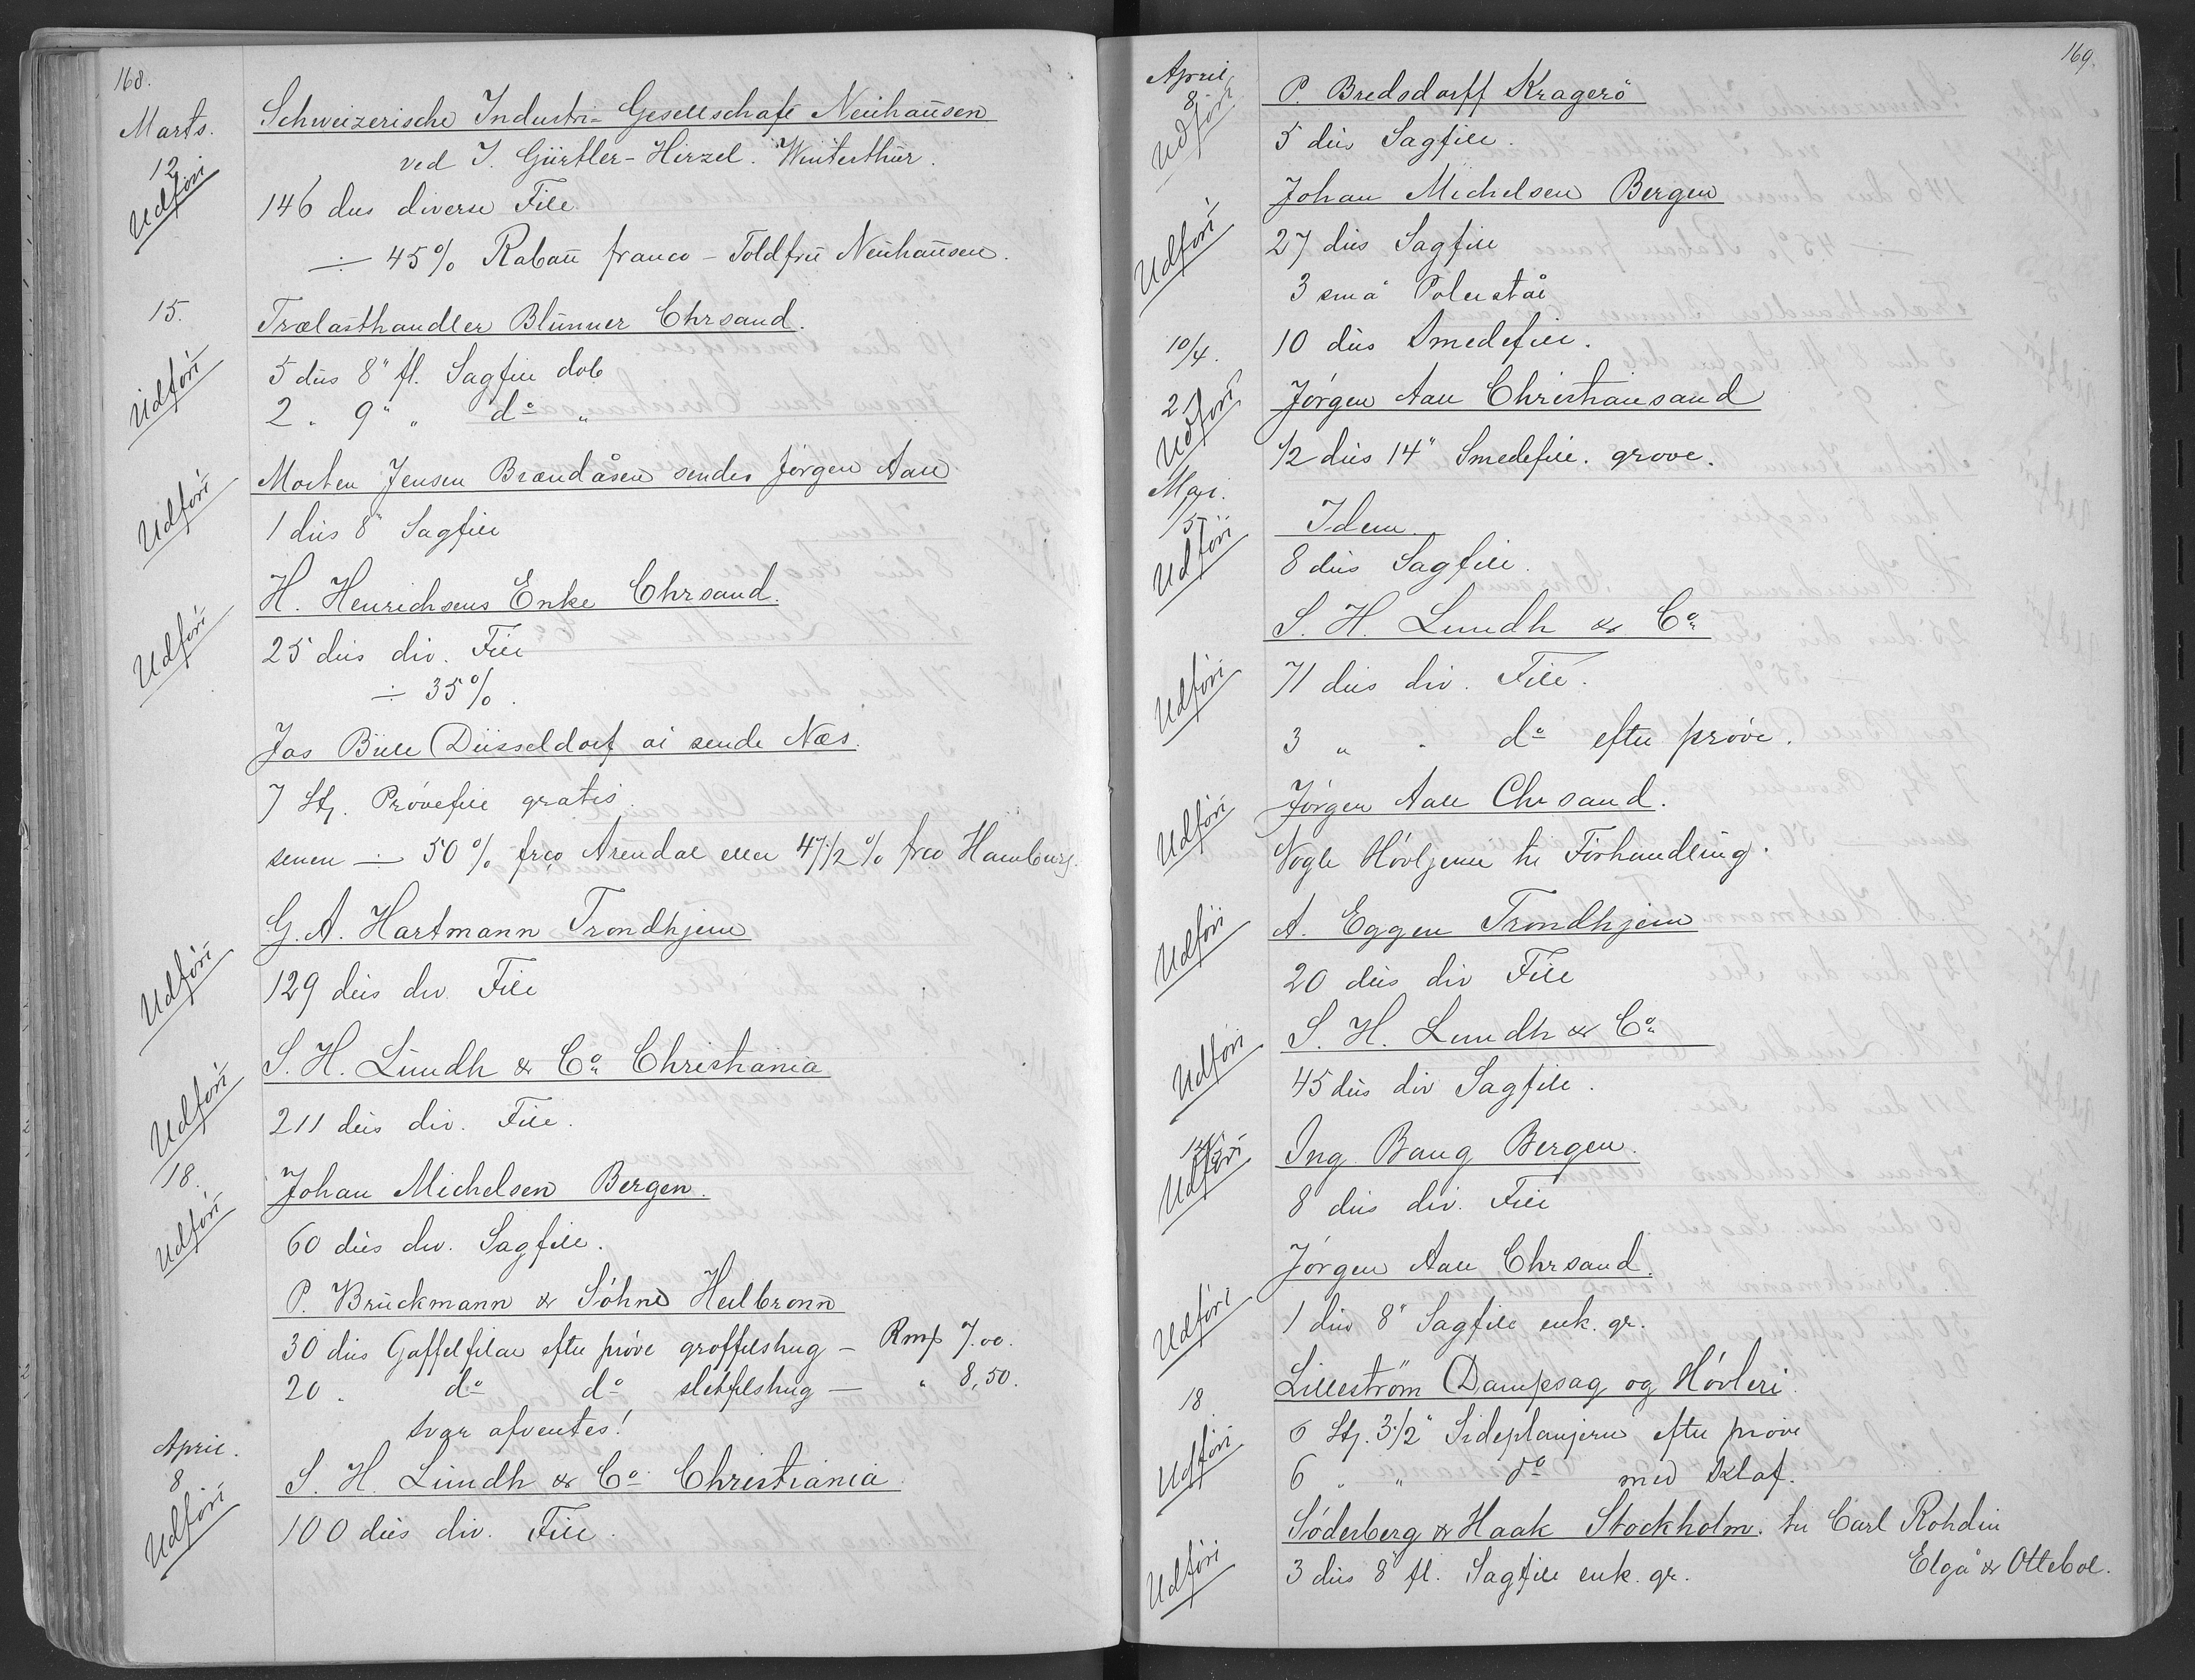 168.
Marts.
12
Udført
Schweizerische Industri-Gesellschaft Neuhausen
ved J. Gürtler-Hirzel. Winterthur.
146 dus diverse File
÷ 45% Rabatt franco - Toldfrit Neuhausen.
15.
Trælasthandler Blunner Chrsand.
Udført
5 dus 8" fl. Sagfile dob
2 „ 9" „ do „
Morten Jensen Brændåsen sendes Jørgen Aall
Udført
1 dus 8" Sagfile
H. Henrichsens Enke Chrsand.
Udført
25 dus div. File
÷ 35%.
Jos Büll Düsseldorf at sende Næs.
7 Stj. Prøvefile gratis.
senere ÷ 50% frco Arendal eller 47 1/2% frco Hamburg.
G. A. Hartmann Trondhjem
Udført
129 dus div. File
S. H. Lundh & Co. Christiania
Udført
211 dus div. File.
18.
Johan Michelsen Bergen.
Udført
60 dus div. Sagfile.
P. Bruckmann & Söhne Heilbronn
30 dus Gaffelfilar efter prøve groffilshug - Rmf 7.00.
20 „ do do sletfilshug — „ 8,50.
svar afventes!
April.
8
Udført
S. H. Lundh & Co. Christiania.
100 dus div. File.
169.
April
8
Udført
P. Bredsdorff Kragerö
5 dus Sagfile.
Johan Michelsen Bergen
Udført
27 dus Sagfile
3 små Polerstål
10/4.
10 dus Smedefile.
2
Udført
Jørgen Aall Christiansand
1/2 dus 14" Smedefile. grove.
Mai.
15
Udført
Idem.
8 dus Sagfile.
S. H. Lundh & Co.
Udført
71 dus div. File.
3 „ „ do efter prøve.
Jørgen Aall Chrsand.
Udført
Nogle Høvljern til Forhandling.
A. Eggen Trondhjem
Udført
20 dus div File
S. H. Lundh & Co.
Udført
45 dus div Sagfile.
Ing. Baug Bergen.
Udført
8 dus div. File
Jørgen Aall Chrsand.
Udført
1 dus 8" Sagfile enk. gr.
18
Lilleström Dampsag og Høvleri.
Udført
6 Stj. 3 1/2" Sideplanjern efter prøve
6 „ „ do med Klaf.
Söderberg & Haak Stockholm. til Carl Rohdin
Elgå & Ottebol.
Udført
3 dus 8" fl. Sagfile enk. gr.